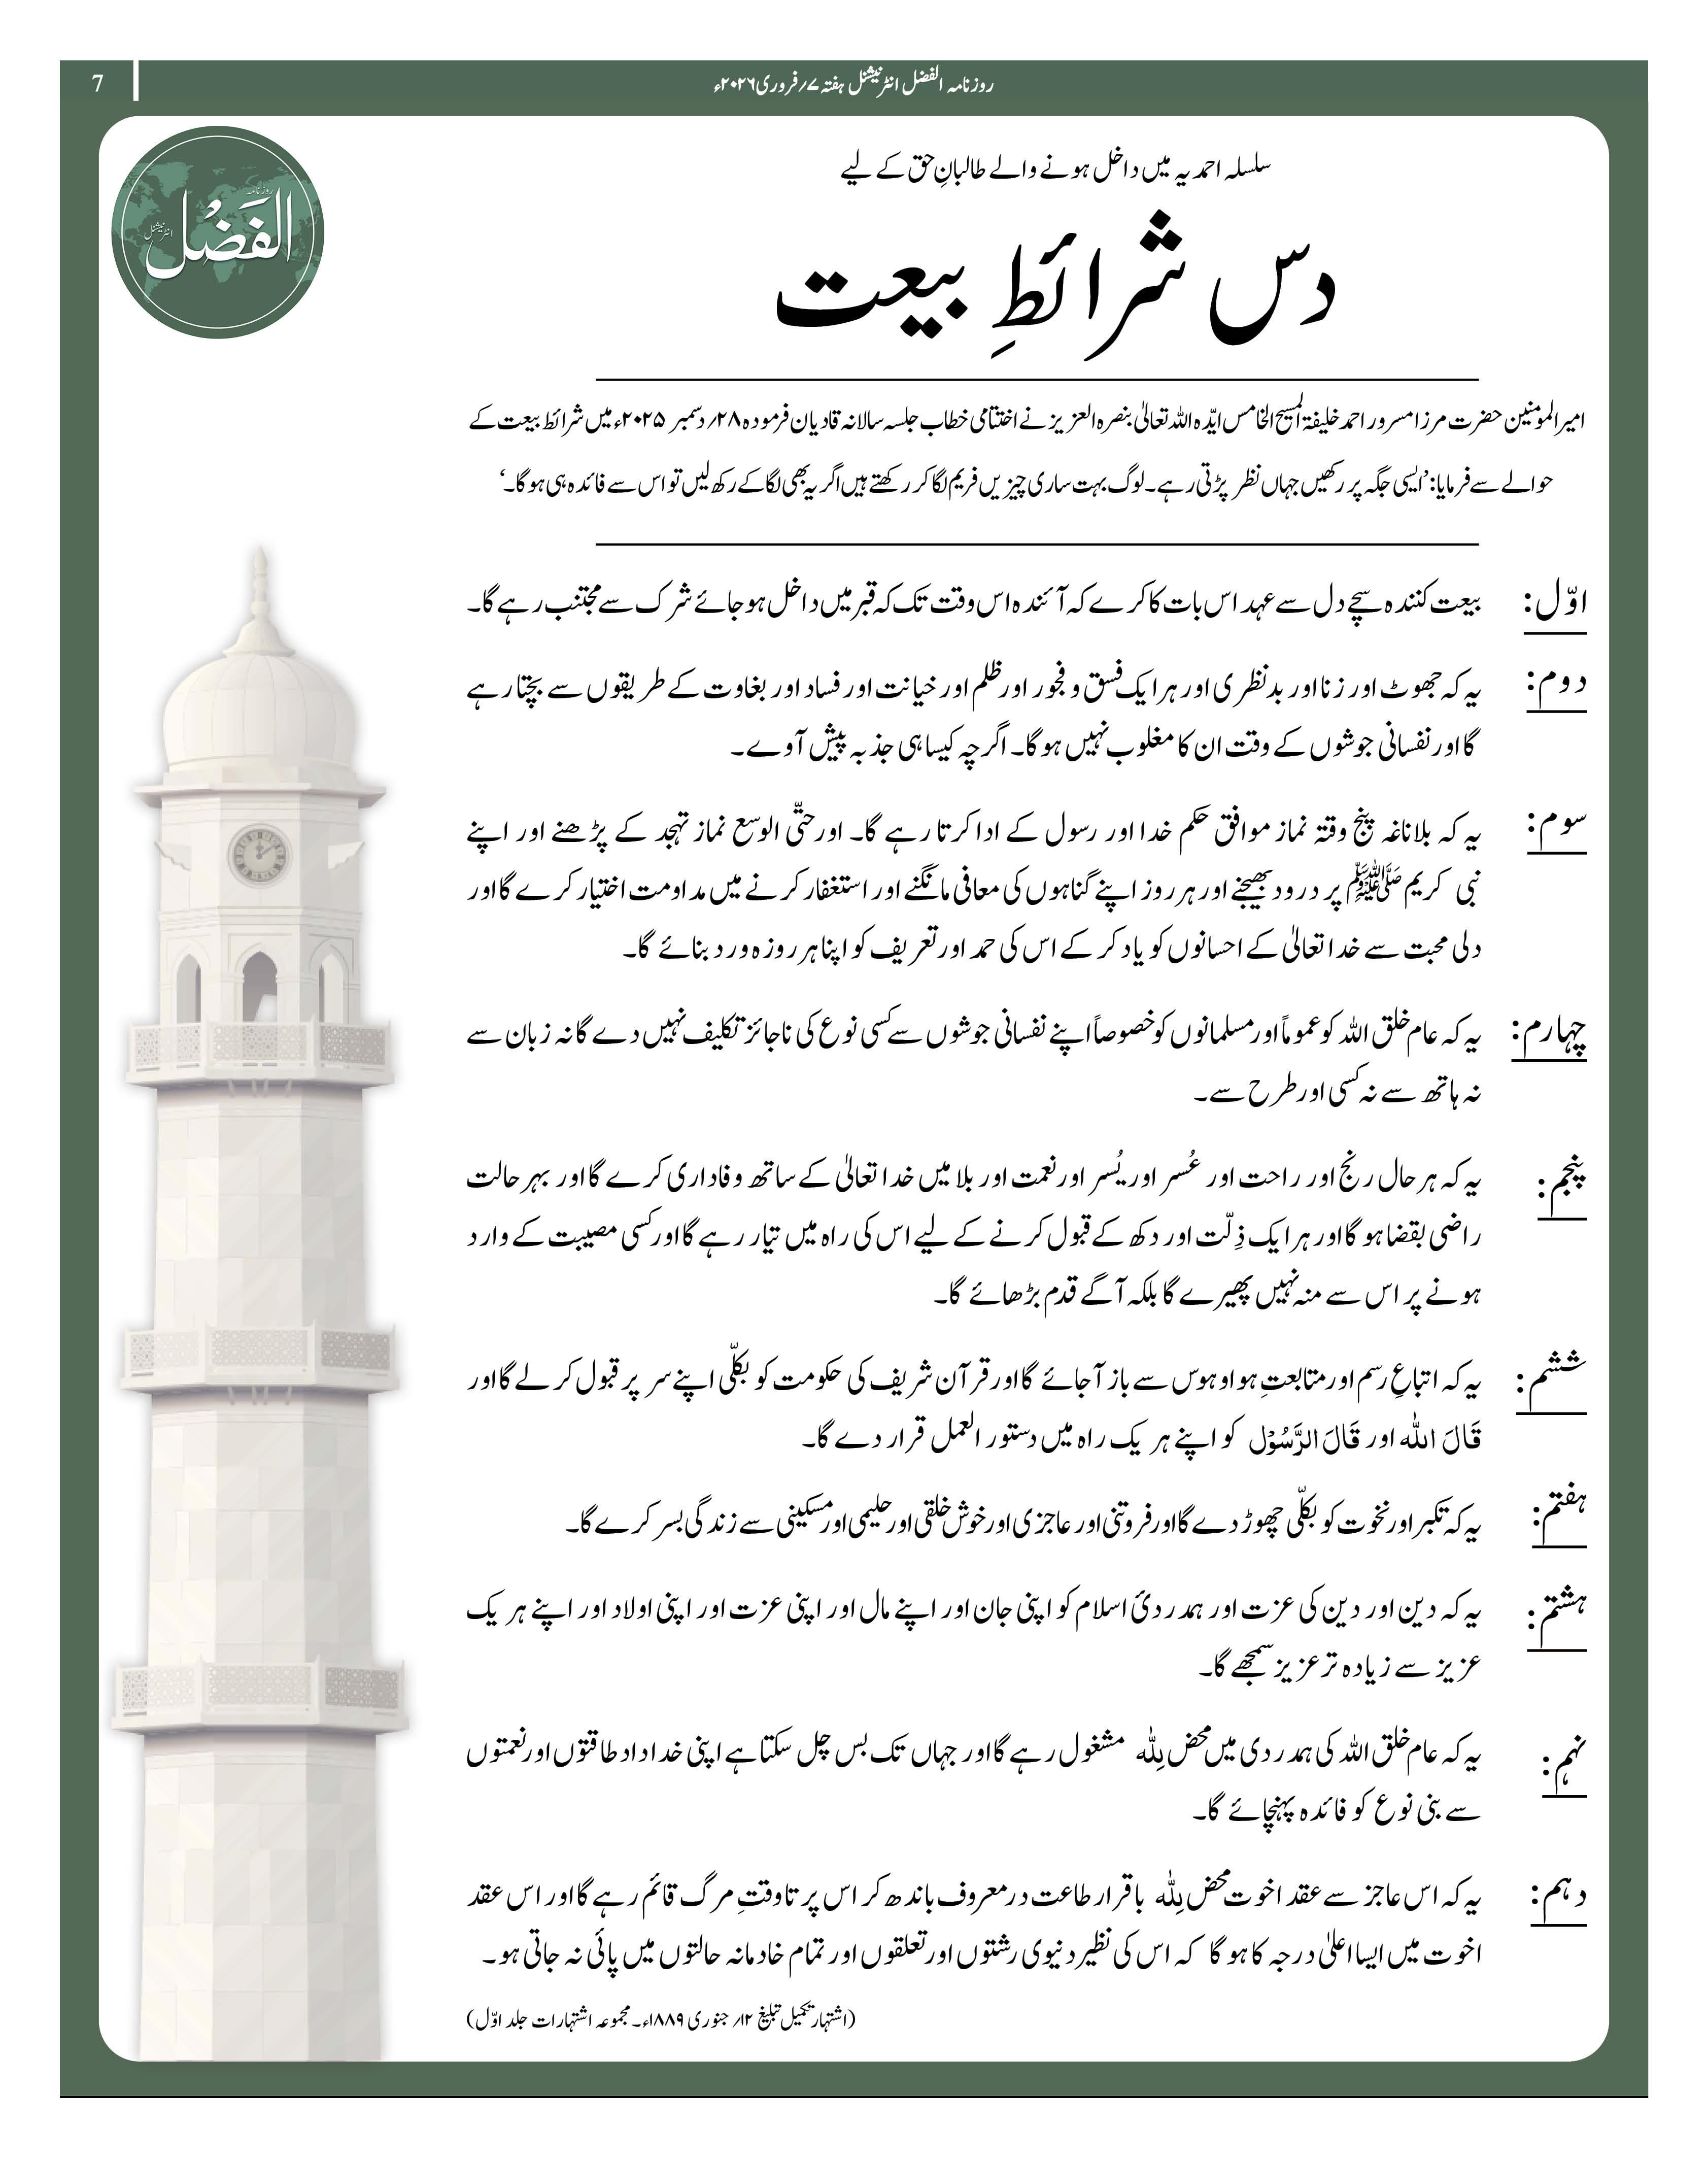 روزنامہ الفضل انٹرنیشنل ہفتہ ۷؍فروری ۲۰۲۶ء
7
روزنامہ
الفَضل
انٹرنیشنل
سلسلہ احمدیہ میں داخل ہونے والے طالبانِ حق کے لیے
دس شرائطِ بیعت
امیرالمومنین حضرت مرزا مسرور احمد خلیفۃ المسیح الخامس ایّدہ اللہ تعالیٰ بنصرہ العزیز نے اختتامی خطاب جلسہ سالانہ قادیان فرمودہ ۲۸؍دسمبر ۲۰۲۵ء میں شرائط بیعت کے
حوالے سے فرمایا: ’ایسی جگہ پر رکھیں جہاں نظر پڑتی رہے۔ لوگ بہت ساری چیزیں فریم لگا کر رکھتے ہیں اگر یہ بھی لگا کے رکھ لیں تو اس سے فائدہ ہی ہوگا۔‘
اوّل: بیعت کنندہ سچے دل سے عہد اس بات کا کرے کہ آئندہ اس وقت تک کہ قبر میں داخل ہو جائے شرک سے مجتنب رہے گا۔
دوم: یہ کہ جھوٹ اور زنا اور بدنظری اور ہر ایک فسق و فجور اور ظلم اور خیانت اور فساد اور بغاوت کے طریقوں سے بچتا رہے
گا اور نفسانی جوشوں کے وقت ان کا مغلوب نہیں ہوگا۔ اگرچہ کیسا ہی جذبہ پیش آوے۔
سوم: یہ کہ بلاناغہ پنج وقتہ نماز موافق حکم خدا اور رسول کے ادا کرتا رہے گا۔ اور حتّی الوسع نماز تہجد کے پڑھنے اور اپنے
نبی کریم ﷺ پر درود بھیجنے اور ہر روز اپنے گناہوں کی معافی مانگنے اور استغفار کرنے میں مداومت اختیار کرے گا اور
دلی محبت سے خدا تعالیٰ کے احسانوں کو یاد کر کے اس کی حمد اور تعریف کو اپنا ہر روزہ ورد بنائے گا۔
چہارم: یہ کہ عام خلق اللہ کو عموماً اور مسلمانوں کو خصوصاً اپنے نفسانی جوشوں سے کسی نوع کی ناجائز تکلیف نہیں دے گا نہ زبان سے
نہ ہاتھ سے نہ کسی اور طرح سے۔
پنجم: یہ کہ ہر حال رنج اور راحت اور عُسر اور یُسر اور نعمت اور بلا میں خدا تعالیٰ کے ساتھ وفاداری کرے گا اور بہر حالت
راضی بقضا ہو گا اور ہر ایک ذِلّت اور دکھ کے قبول کرنے کے لیے اس کی راہ میں تیار رہے گا اور کسی مصیبت کے وارد
ہونے پر اس سے منہ نہیں پھیرے گا بلکہ آگے قدم بڑھائے گا۔
ششم: یہ کہ اتباعِ رسم اور متابعتِ ہوا و ہوس سے باز آ جائے گا اور قرآن شریف کی حکومت کو بکلّی اپنے سر پر قبول کر لے گا اور
قَالَ اللہ اور قَالَ الرَّسُوْل کو اپنے ہر یک راہ میں دستور العمل قرار دے گا۔
ہفتم: یہ کہ تکبر اور نخوت کو بکلّی چھوڑ دے گا اور فروتنی اور عاجزی اور خوش خلقی اور حلیمی اور مسکینی سے زندگی بسر کرے گا۔
ہشتم: یہ کہ دین اور دین کی عزت اور ہمدردیٔ اسلام کو اپنی جان اور اپنے مال اور اپنی عزت اور اپنی اولاد اور اپنے ہر یک
عزیز سے زیادہ تر عزیز سمجھے گا۔
نہم: یہ کہ عام خلق اللہ کی ہمدردی میں محض لِلّٰہ مشغول رہے گا اور جہاں تک بس چل سکتا ہے اپنی خداداد طاقتوں اور نعمتوں
سے بنی نوع کو فائدہ پہنچائے گا۔
دہم: یہ کہ اس عاجز سے عقد اخوت محض لِلّٰہ باقرار طاعت در معروف باندھ کر اس پر تا وقتِ مرگ قائم رہے گا اور اس عقد
اخوت میں ایسا اعلیٰ درجہ کا ہو گا کہ اس کی نظیر دنیوی رشتوں اور تعلقوں اور تمام خادمانہ حالتوں میں پائی نہ جاتی ہو۔
(اشتہار تکمیل تبلیغ ۱۲؍ جنوری ۱۸۸۹ء۔ مجموعہ اشتہارات جلد اوّل)